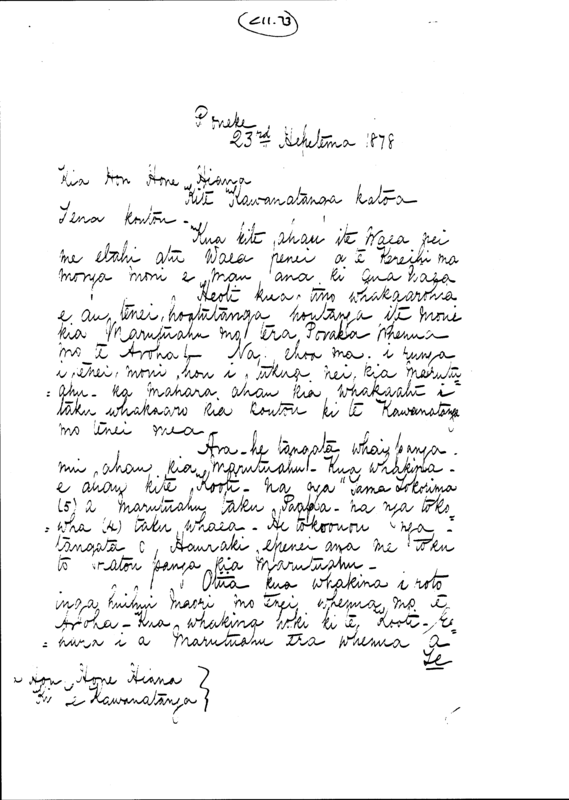 (C11.73)
Poneke
23rd Hepetema 1878
Kia Hon Hone Hiana
Kite Kawanatanga katoa
Tena koutou -
Kua kite ahau ite Waea nei
me etahi atu Waea penei a te Kereihi ma
monga moni e mau ana ki
Heoti kua tino whakaarohia
e au tenei hoatutanga houtanga ite moni
kia Marutuahu mo tera Poraka whenua
mo te Aroha - Na, ehoa ma, i runga
i enei moni hou i tukua nei, kia Marutu=
=ahu - ka mahara ahau kia whakaatu i
taku whakaaro kia koutou ki te Kawanatanga
mo tenei mea -
Ara - he tangata whai panga
nui ahau kia Marutuahu - Kua whakina -
e ahau kite Kooti - na nga Tama Tokorima
(5) a Marutuahu taku Papa - na nga toko=
=wha (4) taku whaea - He tokoouou nga -
tangata o Hauraki epenei ana me toku
to ratou panga kia Marutuahu -
Otua kua whakina i roto
inga huihui maori mo tenei whenua mo te
Aroha - Kua whakina hoki ki te Kooti - E=
=hara i a Marutuahu tra whenua a
Te
Hon Hone Hiana
Ki te Kawanatanga